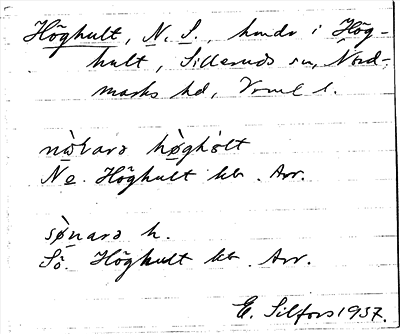 Höghult, N. S., hmdr i Hög-
hult, Silleruds sn, Nord-
marks hd, Vrml l.
nɷ̀ꝛarə hø̀ghòlt
No. Höghult hb. Arr.
sø̀narə h.
Sö. Höghult hb. Arr.
E. Silfors 1937.